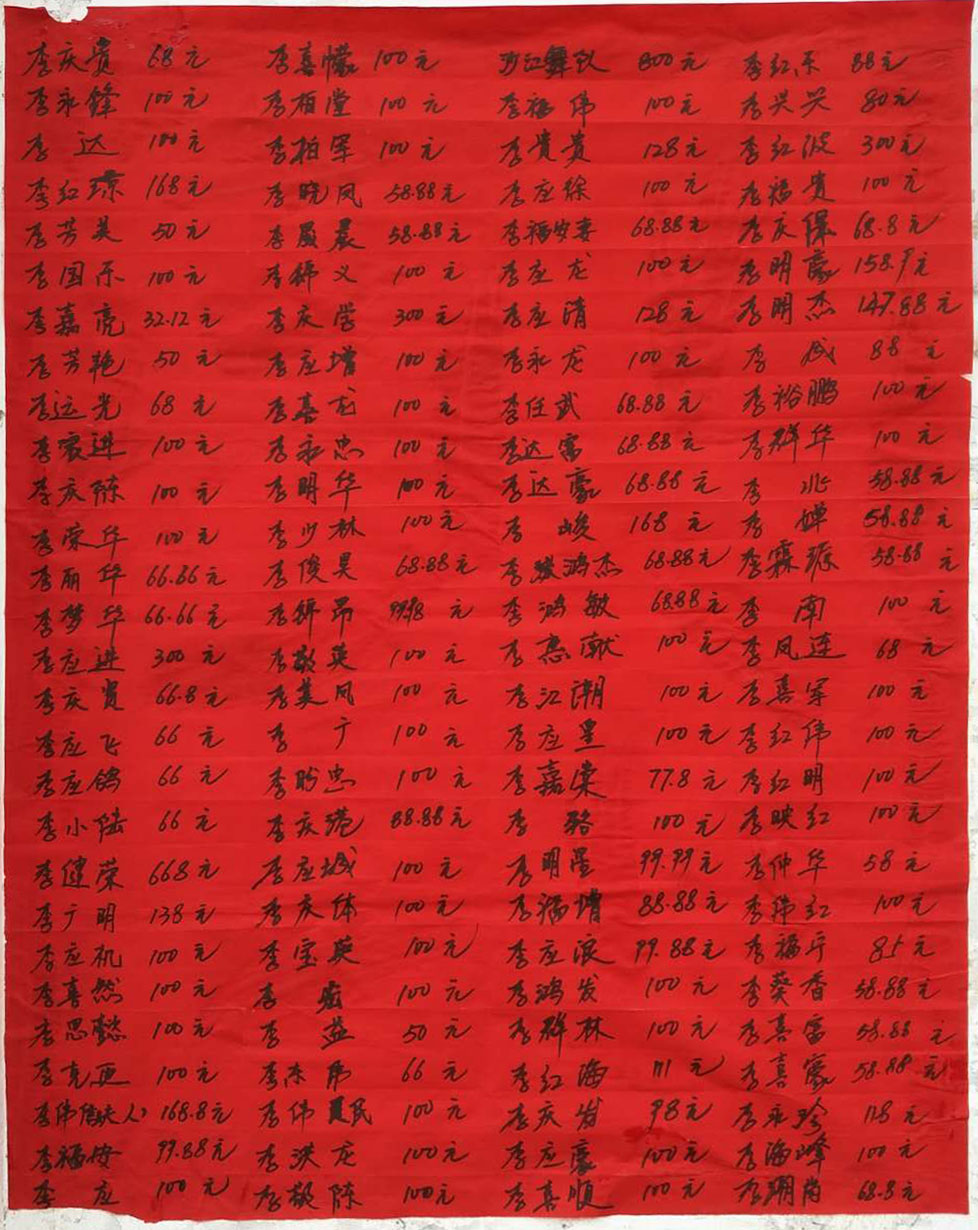 李庆贵 68元 李喜 100元 沙江舞队 800元 李红乐 88元
李永锋 100元 李柏堂 100元 李福伟 100元 李兴兴 80元
李达 100元 李柏军 100元 李贵贵 128元 李红波 300元
李红琼 168元 李晓凤 58.88元 李应徐 100元 李福贵 100元
李芳美 50元 李晨 58.88元 李福安妻 68.88元 李庆保 68.8元
李国乐 100元 李 义 100元 李应龙 100元 李明豪 158.9元
李嘉亮 32.12元 李庆学 300元 李应清 128元 李明杰 147.88元
李芳艳 50元 李应增 100元 李永龙 100元 李成 88元
李运光 68元 李喜龙 100元 李任武 68.88元 李裕鹏 100元
李 进 100元 李永忠 100元 李达富 68.88元 李群华 100元
李庆陈 100元 李明华 100元 李达豪 68.88元 李兆 58.88元
李荣华 100元 李少林 100元 李峻 168元 李婵 58.88元
李丽华 66.66元 李俊昊 68.88元 李 鸿杰 68.88元 李霖 58.88元
李梦华 66.66元 李 昂 元 李鸿敏 68.88元 李南 100元
李应进 300元 李敬英 100元 李 献 100元 李凤连 68元
李庆贵 66.8元 李美凤 100元 李江潮 100元 李喜军 100元
李应飞 66元 李广 100元 李应星 100元 李红伟 100元
李应鸽 66元 李 忠 100元 李嘉荣 77.8元 李红明 100元
李小陆 66元 李庆港 88.88元 李骆 100元 李映红 100元
李健荣 668元 李应城 100元 李明星 99.99元 李仲华 58元
李广明 138元 李庆体 100元 李福增 88.88元 李伟红 100元
李应机 100元 李宝英 100元 李应浪 99.88元 李福平 85元
李喜然 100元 李宏 100元 李鸿发 100元 李葵香 58.88元
李思懿 100元 李益 50元 李群林 100元 李喜富 58.88元
李克 100元 李东伟 66元 李红海 111元 李喜豪 58.88元
李伟 夫人 168.8元 李伟民 100元 李庆发 98元 李永珍 118元
李福安 99.88元 李洪龙 100元 李应豪 100元 李海峰 100元
李应 100元 李敬陈 100元 李喜顺 100元 李 尚 68.8元